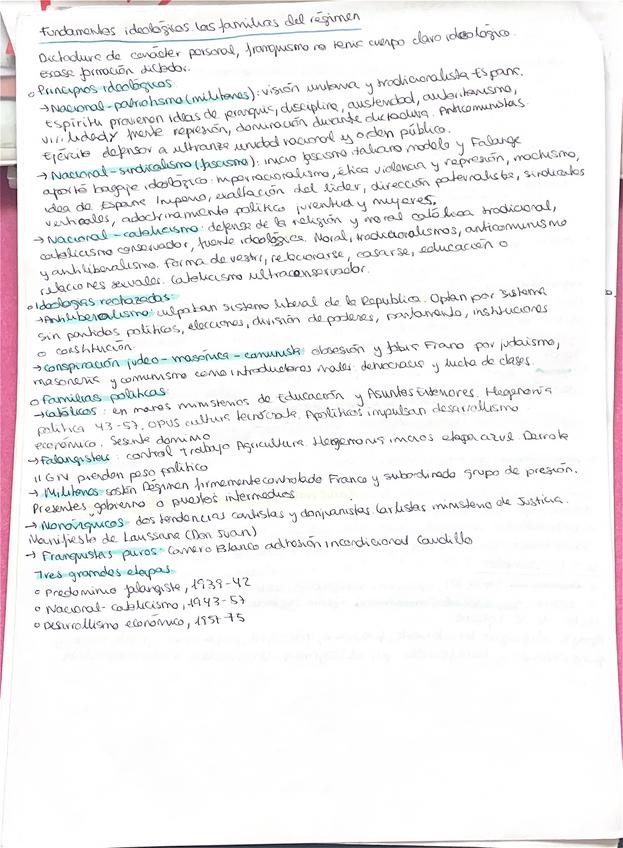 Fundamentos ideológicos las familias del régimen
Dictadura de carácter personal, franquismo no tenía cuerpo claro ideológico.
escasa formación dictador.
o Principios ideológicos
→ Nacional-patriotismo (militares): visión unitaria y tradicionalista España.
Espíritu provienen ideas de jerarquía, disciplina, austeridad, autoritarismo,
virilidad y frente represión, dominación durante dictadura. Anticomunistas.
Ejército defensor a ultranza unidad nacional y orden público.
→ Nacional-sindicalismo (fascismo): inicio fascismo italiano modelo y Falange
aportó bagaje ideológico: imperracionalismo, ética violencia y represión, machismo,
idea de España Imperio, exaltación del líder, dirección paternalista, sindicatos
verticales, adoctrinamiento político juventud y mujeres.
→ Nacional-catolicismo: defensa de la religión y moral católica tradicional,
catolicismo conservador, fuente ideológica. Moral, tradicionalismos, anticomunismo
y antiliberalismo. Forma de vestir, relacionarse, casarse, educación o
relaciones sexuales. Catolicismo ultraconservador.
o Ideologías rechazadas
→ Antiliberalismo: culpaban sistema liberal de la República. Optan por sistema
sin partidos políticos, elecciones, división de poderes, parlamento, instituciones
o constitución.
→ conspiración judeo-masónica-comunista obsesión y fobia Franco por judaísmo,
masonería y comunismo como introductores males: democracia y lucha de clases.
o Familias políticas:
→ católicos: en manos ministerios de Educación y Asuntos Exteriores. Hegemonía
política 43-57. OPUS cultura tecnócrata. Apolíticos impulsan desarrollismo
económico. Sesenta dominio
→ Falangistas: control Trabajo Agricultura Hegemonía inicios etapa azul Derrota
II GM pierden peso político
→ Militares sostén Régimen firmemente controlado Franco y subordinado grupo de presión.
Presentes gobierno o puestos intermedios
→ Monárquicos dos tendencias carlistas y donjuanistas. Carlistas ministerio de Justicia.
Manifiesto de Laussana (Don Juan)
→ Franquistas puros: Carrero Blanco adhesión incondicional Caudillo
Tres grandes etapas
o Predominio falangista, 1939-42
o Nacional-catolicismo, 1943-57
o Desarrollismo económico, 1957-75